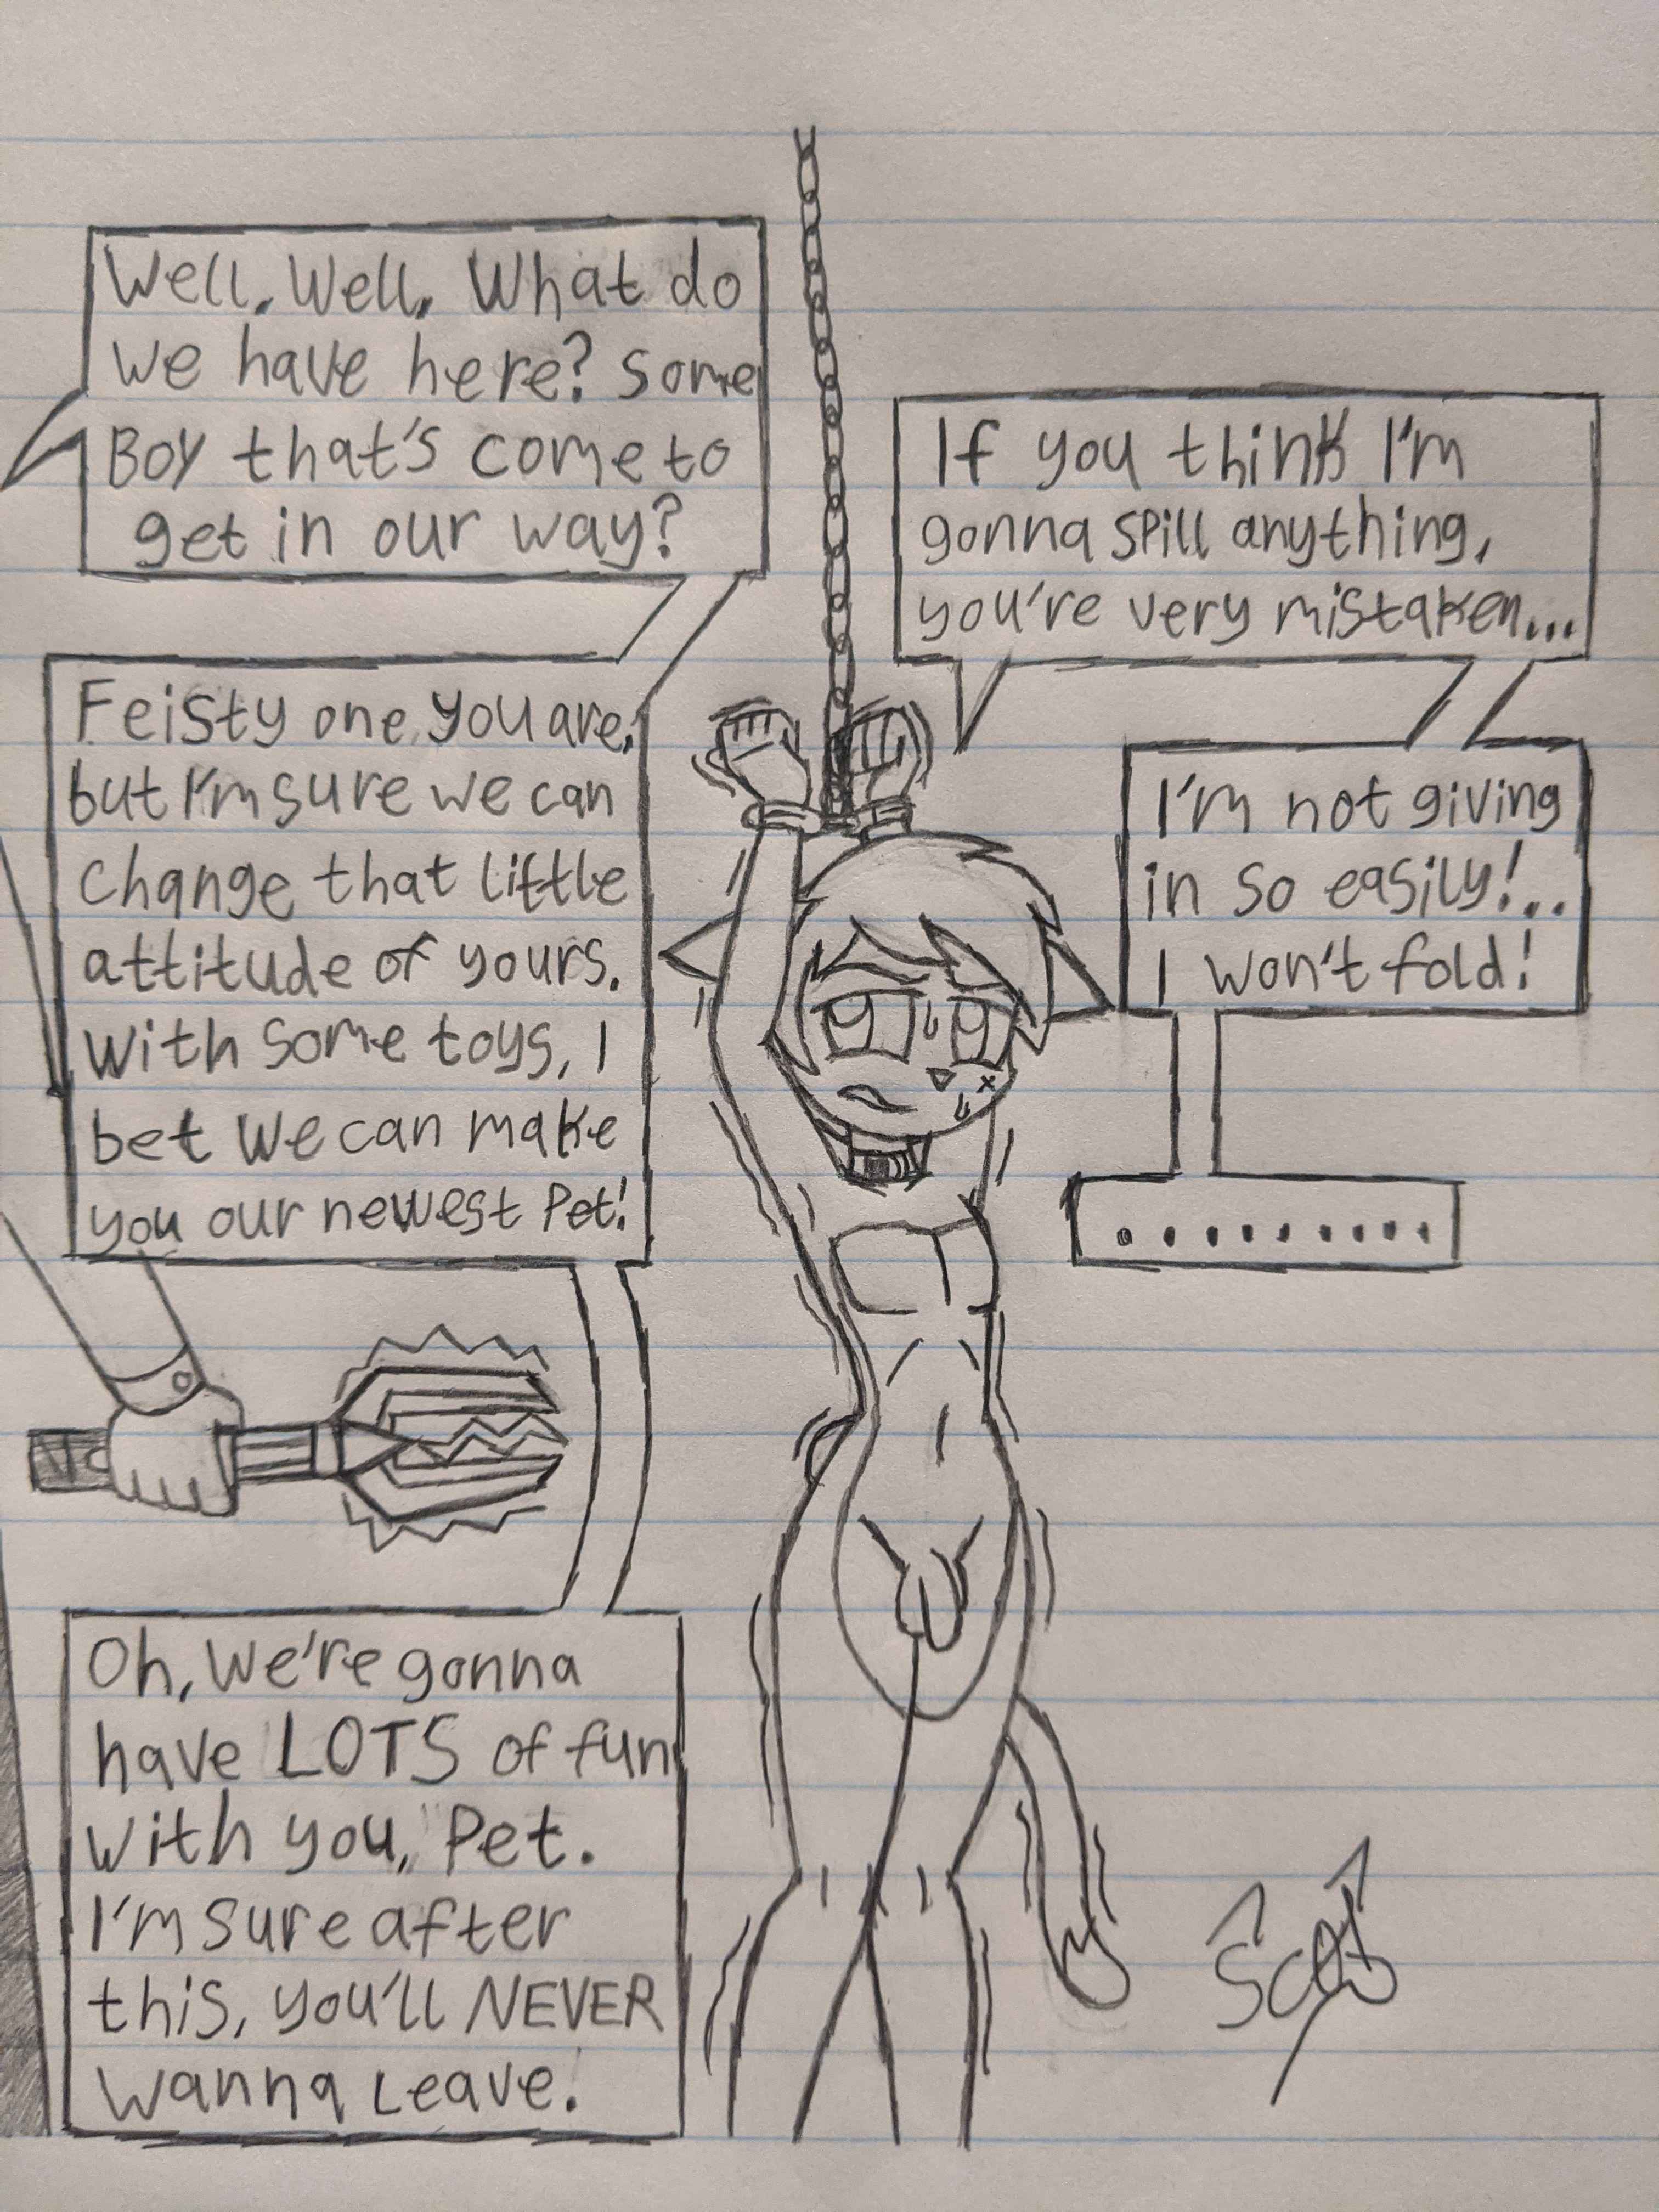 Well, Well, What do
we have here? Some
Boy that's come to
get in our way?
If you think I'm
gonna spill anything,
you're very mistaken...
Feisty one you are,
but I'm sure we can
change that little
attitude of yours.
With some toys, I
bet we can make
you our newest Pet!
I'm not giving
in so easily!..
I won't fold!
.........
Oh, We're gonna
have LOTS of fun
with you, Pet.
I'm sure after
this, you'll NEVER
wanna Leave!